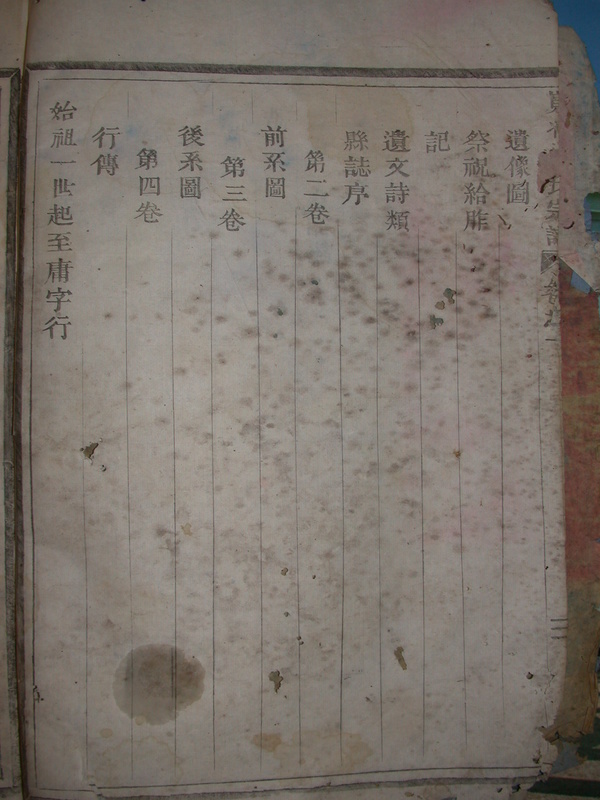 遺像圖
祭祝給胙
記
遺文詩類
縣誌序
第二卷
前系圖
第三卷
後系圖
第四卷
行傳
始祖一世起至庸字行